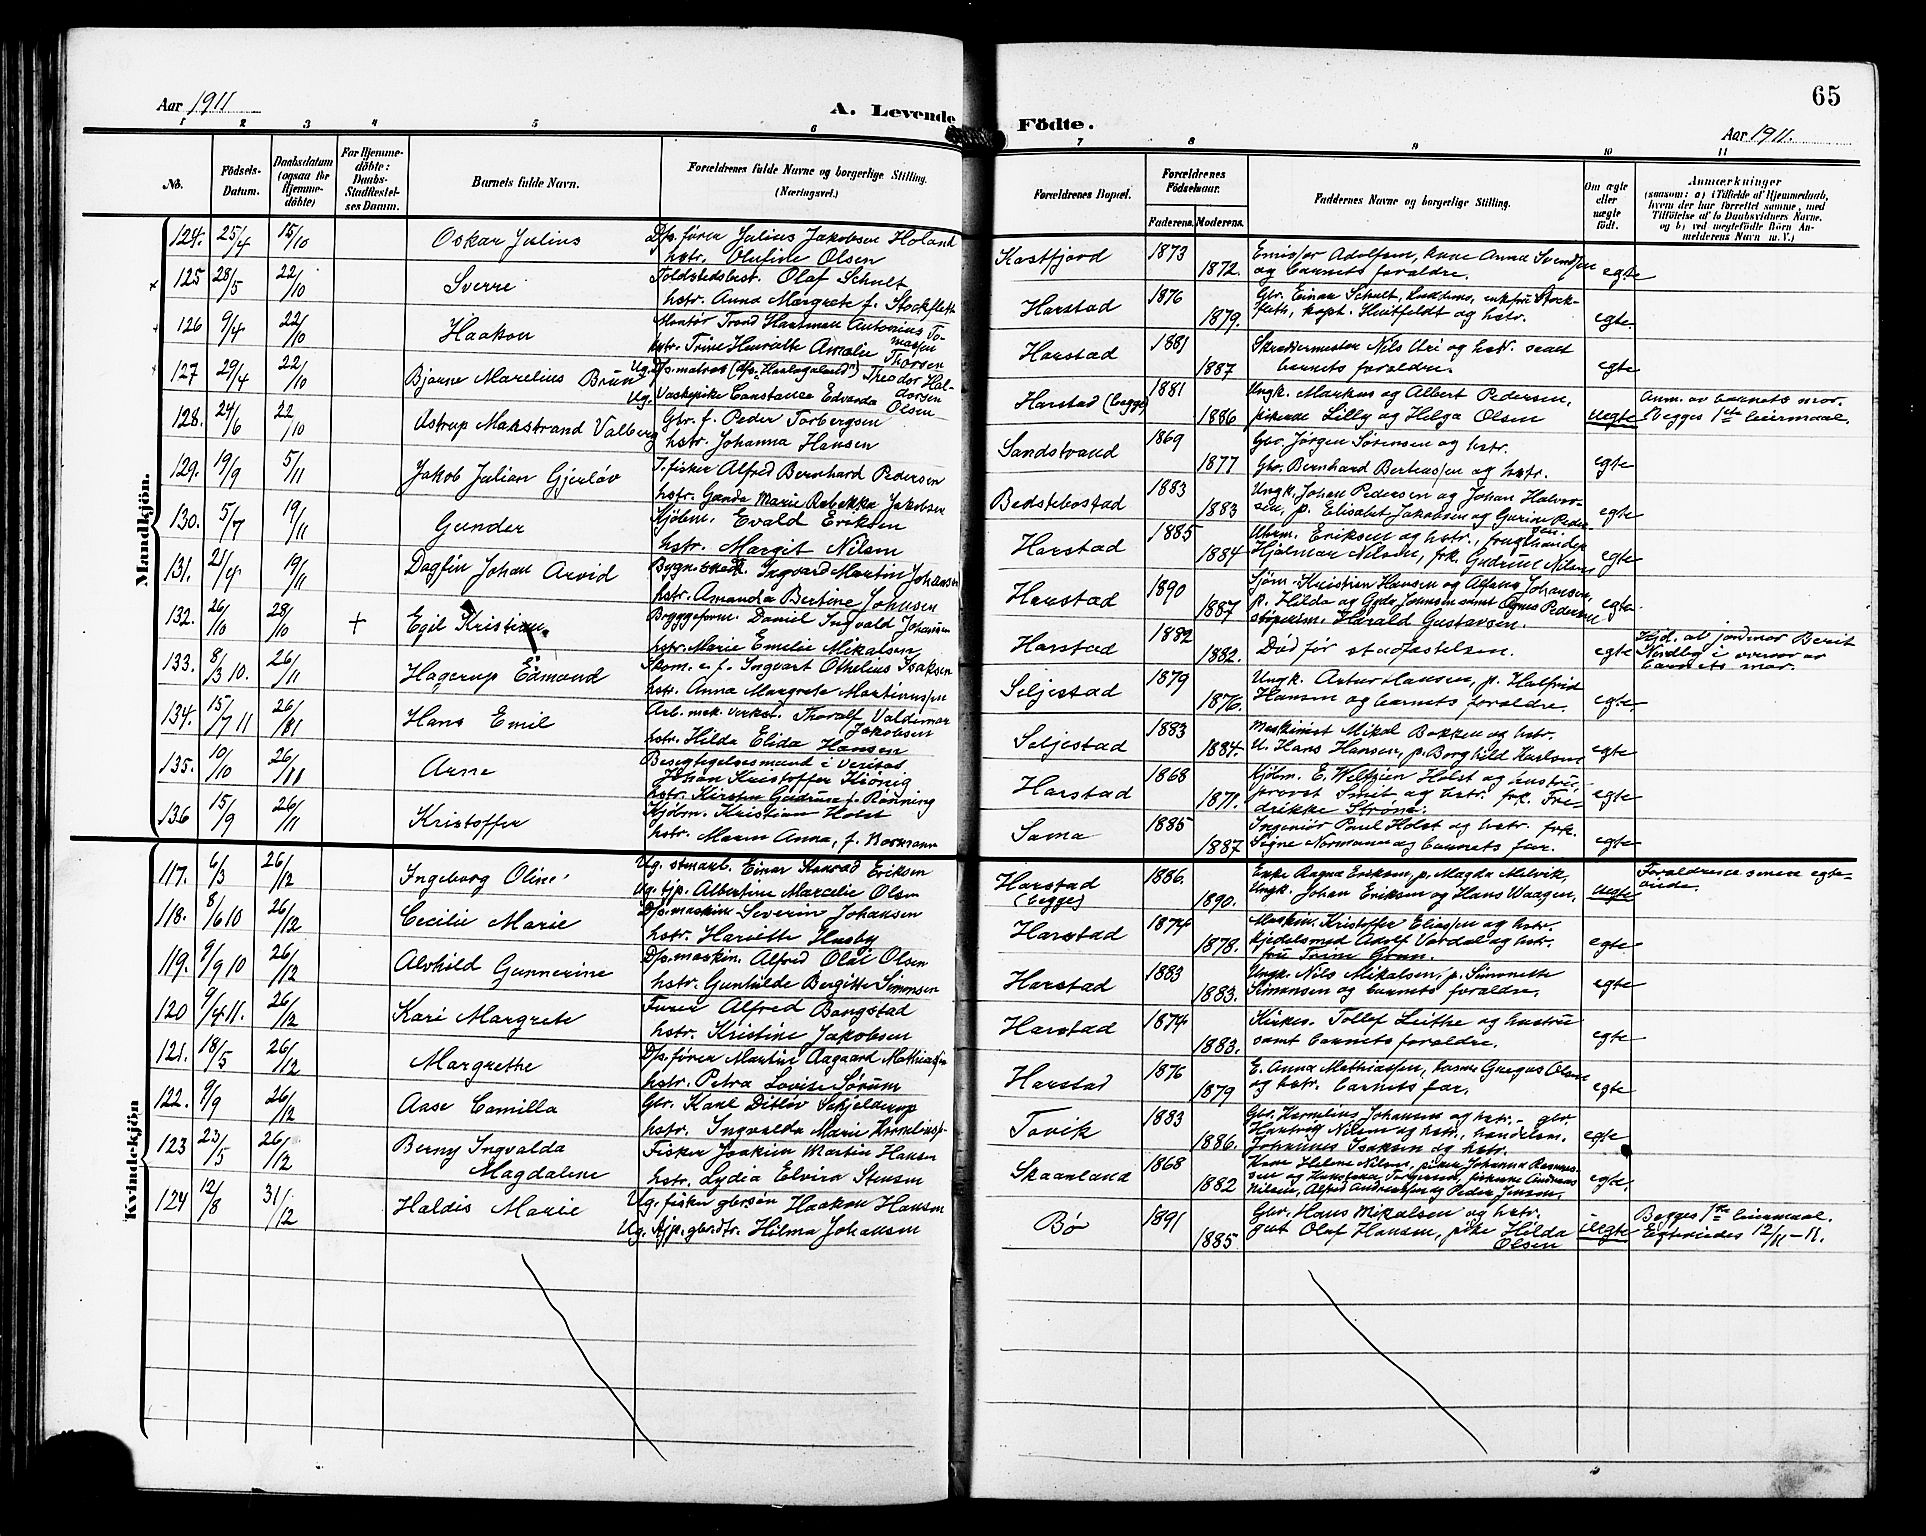 Aar 1911
A. Levende
Födte.
65
Aar 1911.
1 2 3 4 5 6 7 8 9 10 11
No.
Födsels-Datum.
Daabsdatum (ogsaa for Hjemme-döbte)
For Hjemme-döbte: Daabs-Stadfæstel-ses Datum.
Barnets fulde Navn.
Forældrenes fulde Navne og borgerlige Stilling. (Næringsvei.)
Forældrenes Bopæl.
Forældrenes Födselsaar.
Faderens. Moderens.
Faddernes Navne og borgerlige Stilling.
Om ægte eller uægte födt.
Anmærkninger
(saasom: a) i Tilfælde af Hjemmedaab, hvem der har forrettet samme, med Tilföielse af to Daabsvidners Navne, og b) ved uegtefödte Börn An-melderens Navn m. V.)
Mandkjön.
124. 25/4 15/10 Oskar Julius
Dfs. fører Julius Jakobsen Holand
hstr. Olufine Olsen
Kastfjord 1873 1872.
Emissør Adolfsen, kone Anna Svendsen
og barnets forældre. egte
125 28/5 22/10 Sverre
Toldstedsbest. Olaf Schult
hstr. Anna Margrete f. Stockfleth
Harstad 1876 1879.
Gbr. Einar Schult, enkefru Stock-
fleth, kapt. Huitfeldt og hstr. egte.
126 9/4 22/10 Haakon
Montør Trond Hartman Antonius To-
massen
hstr. Trine Henriette Amalie Thorsen
Harstad 1881 1887
Skreddermester Nils Uri og hstr. samt
barnets forældre. egte
127 29/4 22/10 Bjarne Marelius Brun
Ug. Dfs. matros (Dfs. "Haalogaland") Theodor Hal-
dorsen
Ug. Vaskepike Constance Edvarda Olsen
Harstad (begge) 1881 1886
Ungk. Markus og Albert Pedersen,
pikerne Lilly og Helga Olsen uegte
Anm. av barnets mor.
Begges 1ste leiermaal.
128. 24/6 22/10 Astrup Makstrand Valberg
Gbr. f. Peder Torbergsen
hstr. Johanna Hansen
Sandstrand 1869 1877
Gbr. Jørgen Sørensen og hstr.
Gbr. Bernhard Berteussen og hstr. egte
129. 19/9 5/11 Jakob Julian Gjerløv
I. fisker Alfred Bernhard Pedersen
hstr. Ganda Marie Rebekka Jakobsen
Bedstebostad 1883 1883
Ungk. Johan Pedersen og Johan Halvor-
sen, p. Elisabet Jakobsen og Gurine Peder-
sen. egte
130. 5/7 19/11 Gunder
Kjøbm. Evald Eriksen
hstr. Margit Nilsen
Harstad 1885 1884
Uhrm. Eriksen og hstr., frugthandler
Hjalmar Nilsen, frk. Gudrun Nilsen egte
131. 21/4 19/11 Dagfin Johan Arvid
Bygn. sned. Ingvard Martin Johansen
hstr. Amanda Bertine Johnsen
Harstad 1890 1887
Sjøm. Kristian Hansen og Alfany Johansen,
p. Hilda og Gyda Johnsen samt Agnes Pedersen
Harald Gustavsen. egte
132. 26/10 28/10 + Egil Kristian.
Bryggeform. Daniel Ingvald Johansen
hstr. Marie Emelie Mikalsen
Harstad 1882 1882.
Død før stadfæstelsen. egte
Hjd. af jordmor Berit
Nordby i nærvær av
barnets mor.
133. 8/3 10. 26/11 Hagerup Edmund
Skom. e. f. Ingvart Othelius Isaksen
hstr. Anna Margrete Martinussen
Seljestad 1879 1876.
Ungk. Artur Hansen, p. Halfrid
Hansen og barnets forældre. egte.
134. 15/7 11 26/11 Hans Emil
Arb. mek. verkst. Thoralf Valdemar
Jakobsen
hstr. Hilda Elida Hansen
Seljestad 1883 1884.
Maskinist Mikal Bakken og hstr.
U. Hans Hansen, p. Borghild Karlsen egte
135. 10/10 26/11 Arne
Besigtigelsesmand i Veritas
Johan Kristoffer Kiønig
hstr. Kirsten Gudrun f. Rønning
Harstad 1868 1871.
Kjøbm. E. Weltzien Holst og hustru,
provst Smit og hstr. frk. Fre-
drikke Strøm. egte
136 15/9 26/11 Kristoffer
Kjøbm. Kristian Holst
hstr. Maren Anna, f. Normann
Sama 1885 1887
Ingeniør Paul Holst og hstr. frk.
Signe Normann og barnets far. egte
Kvindekjön
117. 6/3 26/12 Ingeborg Oline
Ug. stuearb. Einar Konrad Eriksen
Ug. tjp. Albertine Marcelie Olsen
Harstad (begge) 1886. 1890.
Enke Ragna Eriksen, p. Magda Melvik,
Ungk. Johan Eriksen og Hans Waagen. uegte
Forældrene senere egte-
viede.
118. 8/6 10 26/12 Cecilie Marie
Dfs. maskin. Severin Johansen
hstr. Hariette Husby
Harstad 1874 1878.
Maskin. Kristoffer Eliassen og hstr.
kjedelsmed Adolf Vardal og hstr.
fru Trine Grøn. egte
119. 9/9 10 26/12 Alvhild Gunnerine
Dfs. maskin. Alfred Olai Olsen
hstr. Gunhilde Bergitte Simonsen
Harstad 1883 1883.
Ungk. Nils Mikalsen, p. Simonette
Simonsen og barnets forældre. egte
120 9/4 11. 26/12 Kari Margrete
Furer Alfred Bangstad
hstr. Kristine Jakobsen
Harstad 1874 1883.
Kirkes. Tollef Leithe og hustru
samt barnets forældre. egte
121. 18/5 26/12 Margrethe
Dfs. fører Martin Aagaard Mathiassen
hstr. Petra Lovise Sørum
Harstad 1876 1879
E. Anna Mathiassen, Gregus Olsen
og hstr. barnets far. egte
122. 9/9 26/12 Aase Camilla
Gbr. Karl Ditløv Skjelderup
hstr. Ingvalda Marie Kornelius
Tovik 1883 1886.
Gbr. Kornelius Johansen og hstr. - gbr.
Hartvig Nilsen og hstr., handelsm.
Johannes Isaksen og hstr. egte
123 23/5 26/12 Berny Ingvalda
Magdalene
Fisker Joakim Martin Hansen
hstr. Lydia Elvira Stensen
Skaanland 1868 1882
Kone Helene Nilsen, piken Johanna Rasmus-
sen og Konstanse Torgersen, fiskerne Andreas
Nilsen, Alfred Andreassen og Peder Jensen. egte.
124 12/8 31/12 Haldis Marie
Ug. fisker gbrsøn Haakon Hansen
Ug. tjp. gbrdtr. Hilma Johansen
Bø 1891 1885
Gbr. Hans Mikalsen og hstr.
gut Olaf Hansen, pike Hilda
Olsen uegte
Begges 1ste leiermaal.
Egteviedes 12/11 - 11.